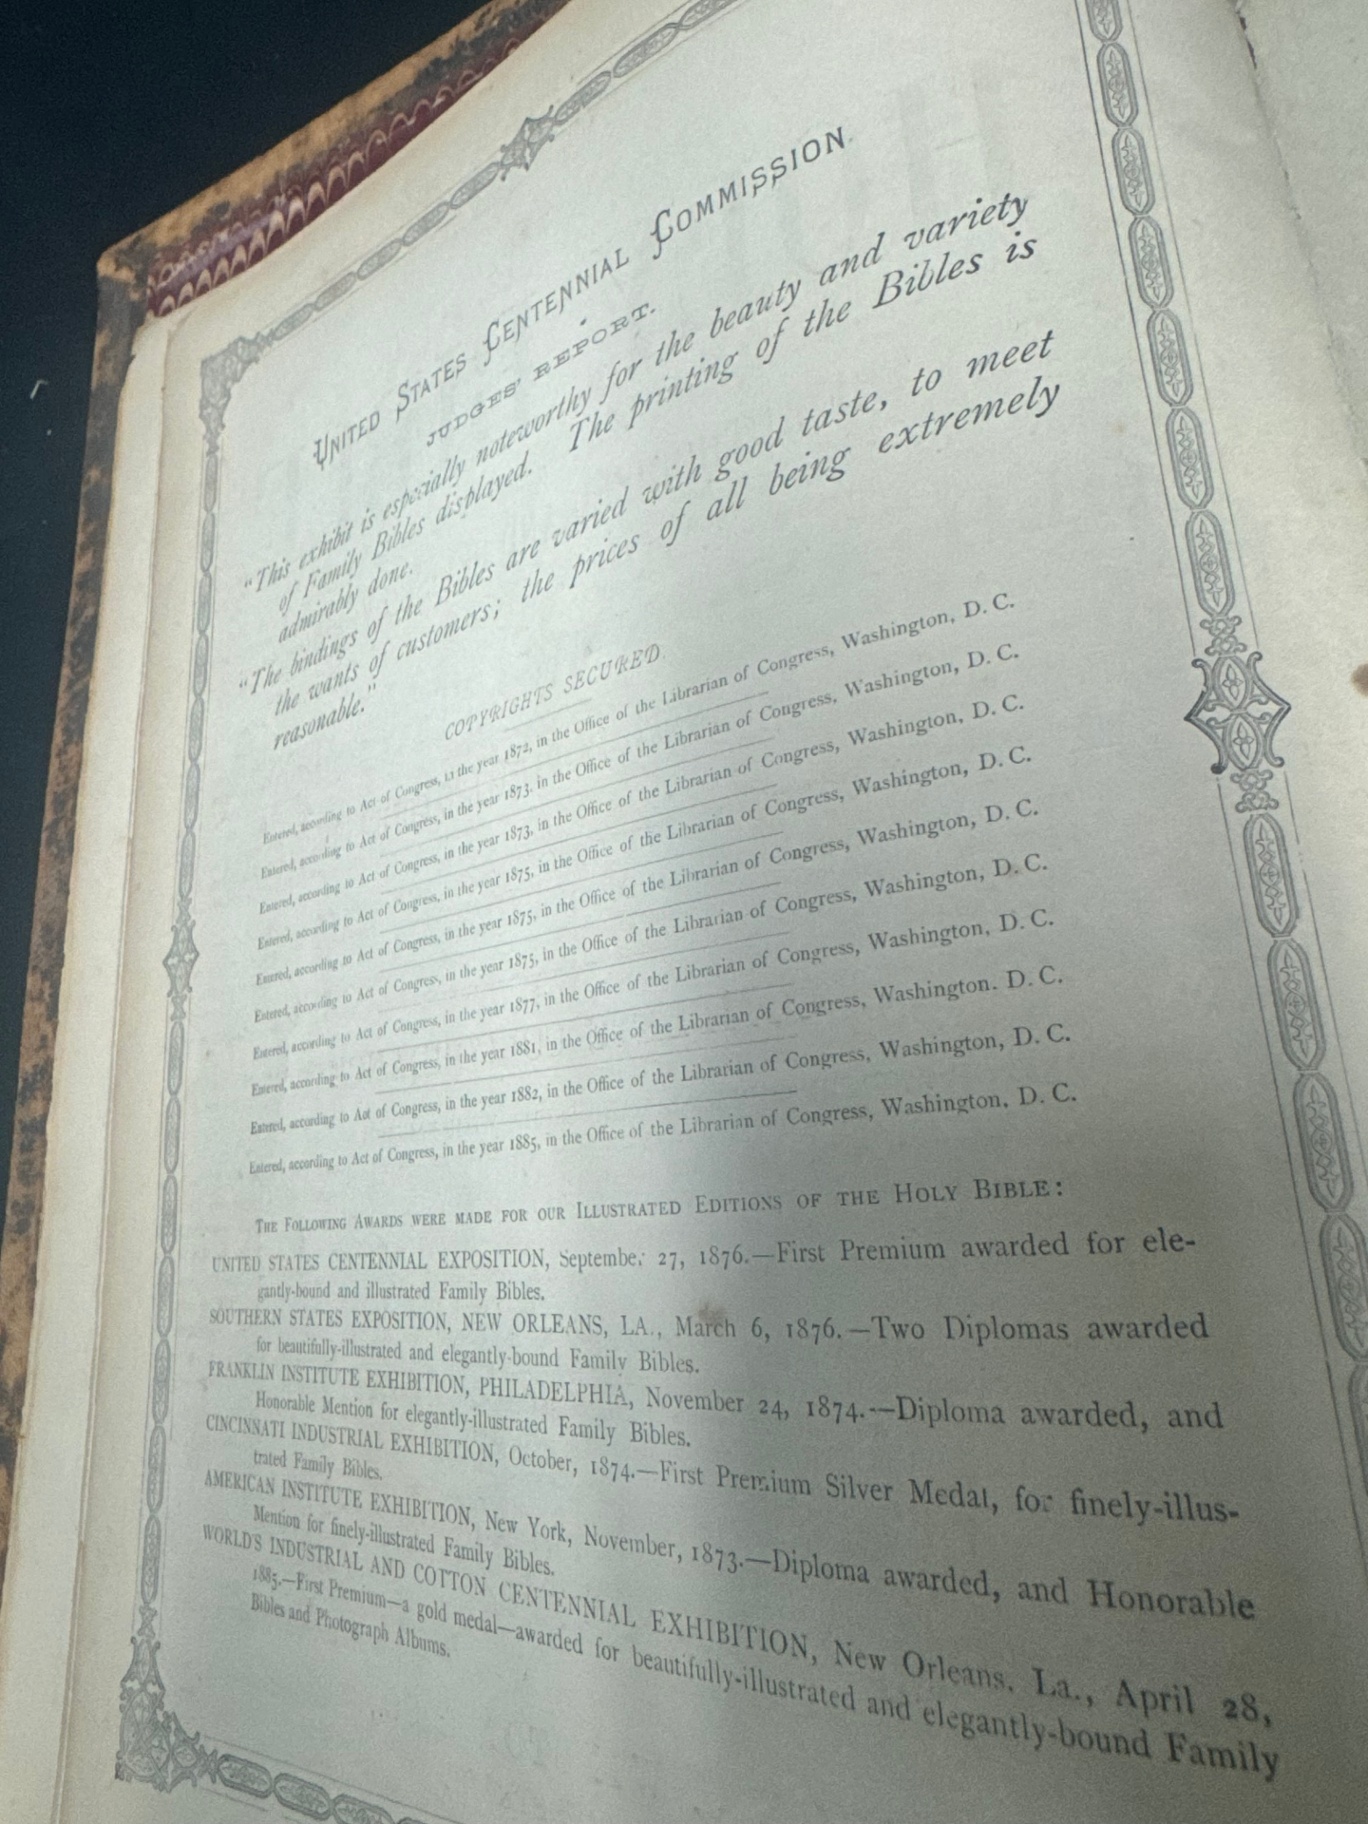 UNITED STATES CENTENNIAL COMMISSION.
JUDGES' REPORT.
"This exhibit is especially noteworthy for the beauty and variety
of Family Bibles displayed. The printing of the Bibles is
admirably done.
"The bindings of the Bibles are varied with good taste, to meet
the wants of customers; the prices of all being extremely
reasonable."
COPYRIGHTS SECURED.
Entered, according to Act of Congress, in the year 1872, in the Office of the Librarian of Congress, Washington, D. C.
Entered, according to Act of Congress, in the year 1873, in the Office of the Librarian of Congress, Washington, D. C.
Entered, according to Act of Congress, in the year 1873, in the Office of the Librarian of Congress, Washington, D. C.
Entered, according to Act of Congress, in the year 1875, in the Office of the Librarian of Congress, Washington, D. C.
Entered, according to Act of Congress, in the year 1875, in the Office of the Librarian of Congress, Washington, D. C.
Entered, according to Act of Congress, in the year 1875, in the Office of the Librarian of Congress, Washington, D. C.
Entered, according to Act of Congress, in the year 1877, in the Office of the Librarian of Congress, Washington, D. C.
Entered, according to Act of Congress, in the year 1881, in the Office of the Librarian of Congress, Washington. D. C.
Entered, according to Act of Congress, in the year 1882, in the Office of the Librarian of Congress, Washington, D. C.
Entered, according to Act of Congress, in the year 1885, in the Office of the Librarian of Congress, Washington, D. C.
THE FOLLOWING AWARDS WERE MADE FOR OUR ILLUSTRATED EDITIONS OF THE HOLY BIBLE:
UNITED STATES CENTENNIAL EXPOSITION, September 27, 1876.—First Premium awarded for ele-
gantly-bound and illustrated Family Bibles.
SOUTHERN STATES EXPOSITION, NEW ORLEANS, LA., March 6, 1876.—Two Diplomas awarded
for beautifully-illustrated and elegantly-bound Family Bibles.
FRANKLIN INSTITUTE EXHIBITION, PHILADELPHIA, November 24, 1874.—Diploma awarded, and
Honorable Mention for elegantly-illustrated Family Bibles.
CINCINNATI INDUSTRIAL EXHIBITION, October, 1874.—First Premium Silver Medal, for finely-illus-
trated Family Bibles.
AMERICAN INSTITUTE EXHIBITION, New York, November, 1873.—Diploma awarded, and Honorable
Mention for finely-illustrated Family Bibles.
WORLD'S INDUSTRIAL AND COTTON CENTENNIAL EXHIBITION, New Orleans. La., April 28,
1885.—First Premium—a gold medal—awarded for beautifully-illustrated and elegantly-bound Family
Bibles and Photograph Albums.